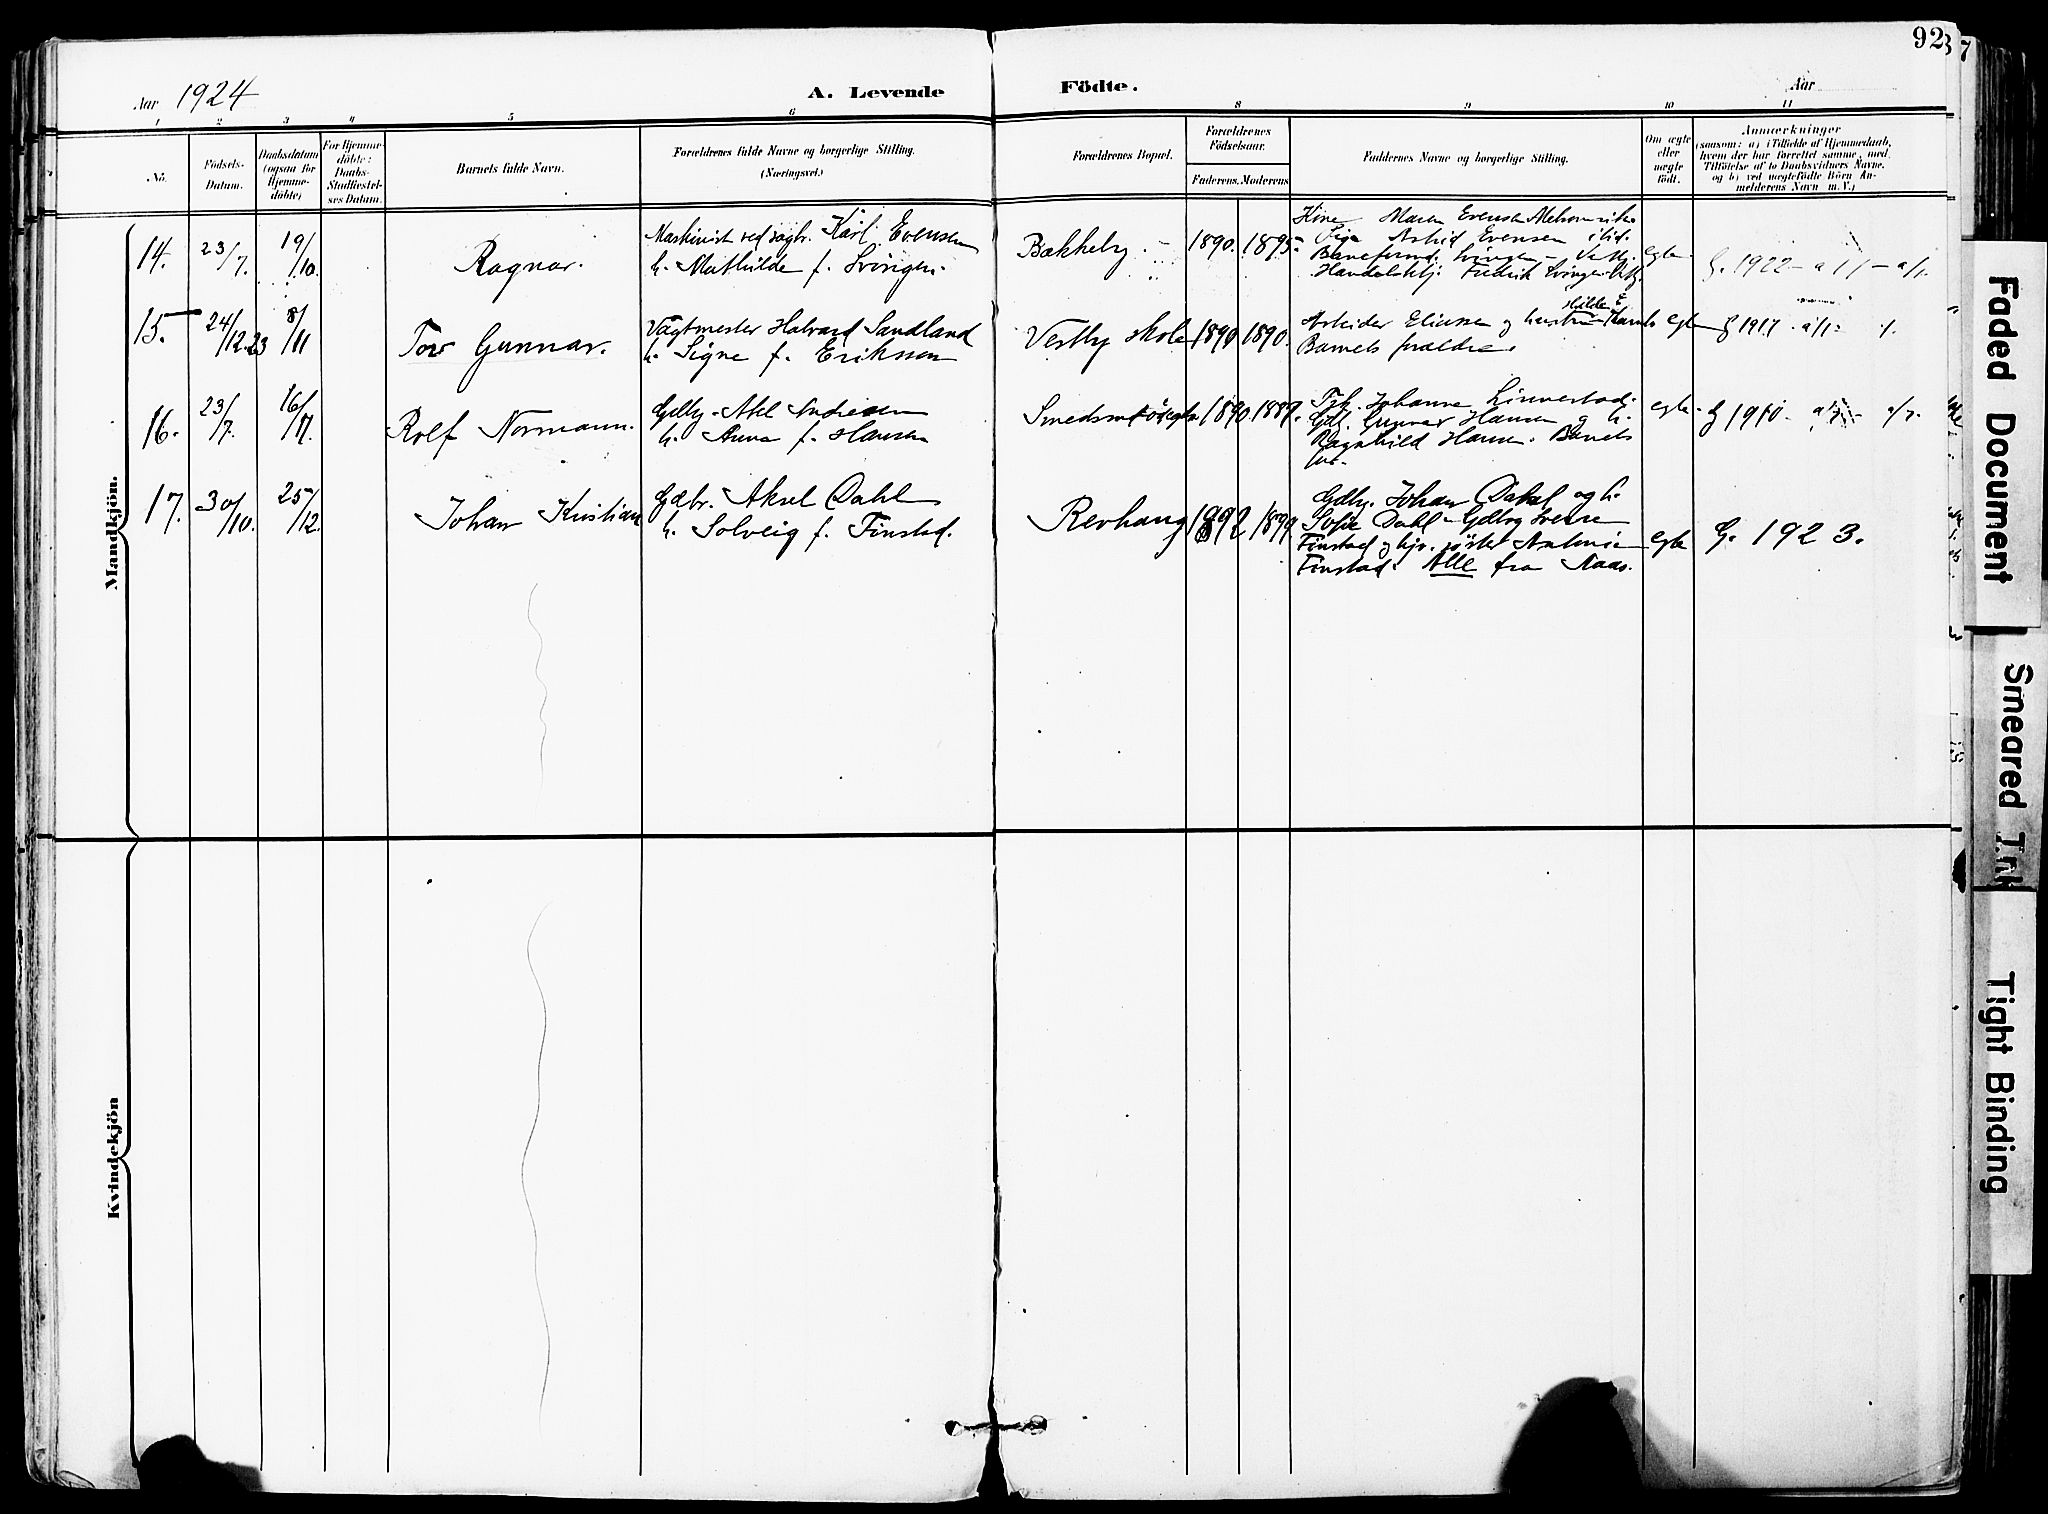 92
7
Aar 1924
A. Levende
Födte.
Aar
1 2 3 4 5 6 8 9 10 11
No.
Födsels-
Datum.
Daabsdatum
(ogsaa for
Hjemme-
döbte)
For Hjemme-
döbte:
Daabs-
Stadfæstel-
ses Datum.
Barnets fulde Navn.
Forældrenes fulde Navne og borgerlige Stilling.
(Næringsvei.)
Forældrenes Bopæl.
Forældrenes
Födselsaar.
Faderens. Moderens
Faddernes Navne og borgerlige Stilling.
Om ægte
eller
uægte
födt.
Anmærkninger
(saasom: a) i Tilfælde af Hjemmedaab,
hvem der har forrettet samme, med
Tilföielse af to Daabsvidners Navne.
og b) ved uægtefödte Börn An-
melderens Navn m. V.)
Mandkjön.
14. 23/7. 19/10.
Ragnar.
Maskinist ved sagbr. Karl Evensen
h. Mathilde f. Svingen.
Bakkeby
1890. 1895.
Maren Evensen
Pige Astrid Evensen ibid.
Baneform. Svingen - Vestby.
Handelsbtj. Fredrik Svingen
egte
G. 1922
15. 24/12.23 8/11
Tor Gunnar.
Vagtmester Halvard Sandland
h. Signe f. Eriksson
Vestby skole
1890 1890.
Arbeider Eliassen og hustru
Barnets forældre.
egte
G 1917
16. 23/7. 16/11.
Rolf Normann.
Gdbr. Axel Andresen
h. Anna f. Hansen
1890. 1889.
Frk. Johanne Linnestad.
Gdbr. Gunnar Hansen og h.
Ragnhild Hansen. Barnets
egte
G 1910
17. 30/10. 25/12.
Johan Kristian
Gdbr. Aksel Dahl
h. Solveig f. Finstad.
Revhaug
1892 1899
Gdbr. Johan Dahl og h.
Sofie Dahl - Gdbr Sverre
Finstad og hjv. søster Antonie
Finstad. Alle fra Aaas.
egte
G. 1923.
Kvindekjön
Faded Document
Smeared Ink
Tight Binding